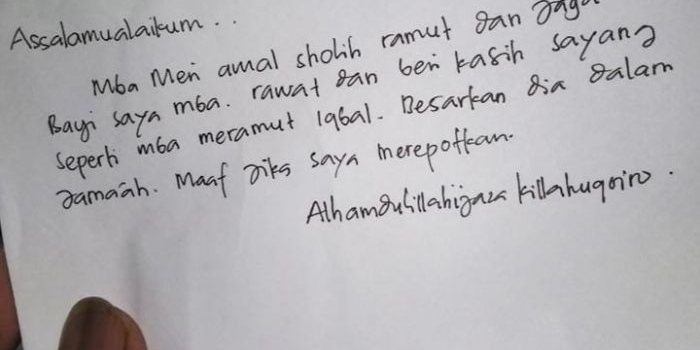 Assalamualaikum . .
Mba Meri amal sholih ramut dan Jaga
Bayi saya mba. rawat dan beri kasih sayang
seperti mba meramut Iqbal. Besarkan dia dalam
Jama'ah. Maaf Jika saya merepotkan.
Alhamdulillahijaza killahuqoiro .